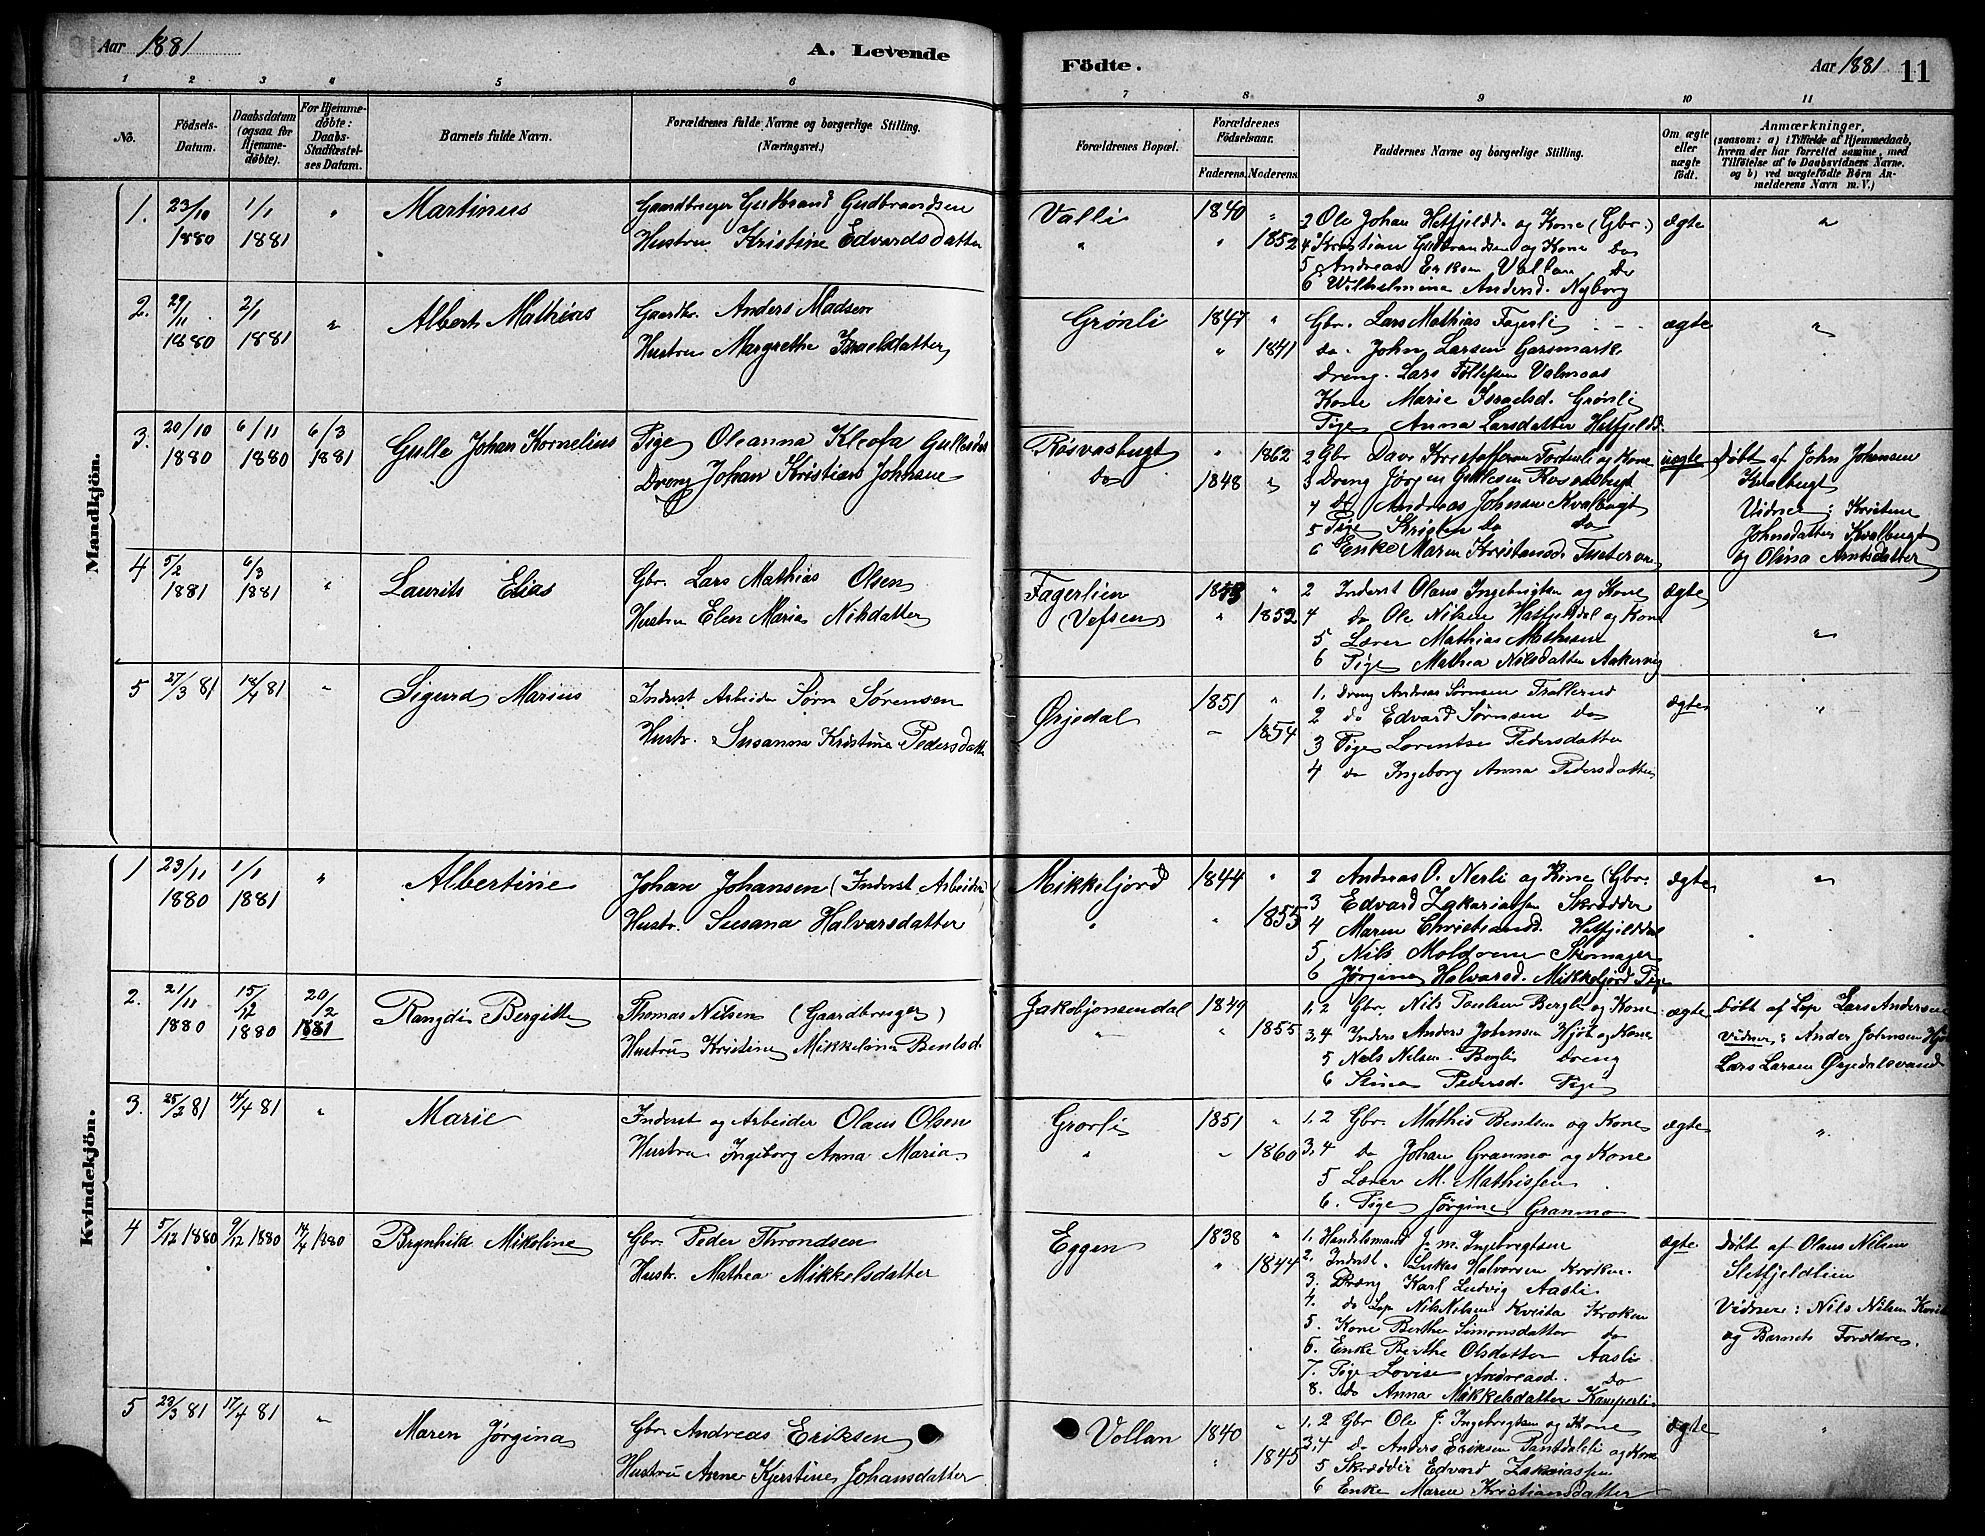 Aar 1881
A. Levende
Födte.
Aar 1881
11
1 2 3 4 5 6 7 8 9 10 11
No.
Födsels-Datum.
Daabsdatum (ogsaa for Hjemmedöbte).
For Hjemmedöbte: Daabs-Stadfæstelses Datum.
Barnets fulde Navn.
Forældrenes fulde Navne og borgerlige Stilling. (Næringsvei.)
Forældrenes Bopæl.
Forældrenes Födselsaar.
Faderens.
Moderens.
Faddernes Navne og borgerlige Stilling.
Om ægte eller uægte födt.
Anmærkninger,
(saasom: a) i Tilfælde af Hjemmedaab, hvem der har forrettet samme, med Tilföielse af to Daabsvidners Navne. og b) ved uægtefödte Börn Anmelderens Navn m. V.)
Mandkjön.
1. 23/10 1880 1/1 1881 " Martinus
Gaardbruger Gudbrand Gudbrandsen
Hustru Kristine Edvardsdatter
Valli 1840 "
" " 1852
2 Ole Johan Hetfjeldd. og Kone (Gbr.)
4 Kristian Gudbrandsen og Kone do
5 Andreas Eriksen Vollan do
6 Wilhelmina Andersd. Nyborg
ægte "
2. 29/11 1880 2/1 1881 " Albert Mathias
Gaardbr. Anders Madsen
Hustru Margrethe Israelsdatter
Grönli 1847 "
" 1841
Gbr. Lars Mathias Fagerli
do. John Larsen Garsmark
Dreng. Lars Tollefsen Valmoas
Kone Marie Israelsd. Grönli
Pige Anna Larsdatter Hetfjeldd.
ægte "
3. 20/10 1880 6/11 1880 6/3 1881 Gulle Johan Kornelius
Pige Oleanna Kleofa Gullesdat
Dreng Johan Kristian Johnsen
Røsvasbugt " 1862
do 1848 "
2 Gbr Kristoffersen og Kone
3 Dreng Jørgen Gullesen Røsvasbugt
4 do Andreas Johnsen Kvalbugt
5 Pige Kristen do do
6 Enke Maren Kristensd.
uægte
Døbt af John Johansen
Kvalbugt
Vidner: Kristine
Johnsdatter Kvalbugt
og Olina Arntsdatter
4 5/2 1881 6/3 1881 " Laurits Elias
Gbr. Lars Mathias Olsen
Hustru Elen Maria Nilsdatter
Fagerlien "
(Vefsen) " 1852
2 Inderst Olaus Ingebrigtsen og Kone
4 do Ole Nilsen Hatfjelddal og Kone
5 Lærer Mathias Mathisen
6 Pige Mathea Nilsdatter Aakervig
ægte "
5 27/3 81 18/4 81 " Sigurd Marius
Inderst Arbeider Sørn Sørensen
Hustr. Susanna Kristine Pedersdatt
Ørjedal 1851 "
" 1854
1. Dreng Andreas Sørnsen Trallerud
2 do Edvard Sørnsen do
3 Pige Lorentse Pedersdatter
4 do Ingeborg Anna Pedersdatter
ægte "
Kvindekjön.
1 23/11 1880 1/1 1881 " Albertine
Johan Johansen (Inderst Arbeider)
Hustr. Susana Halvarsdatter
Mikkeljord 1844 "
" 1855
2 Andreas O. Nerli og Kone (Gbr.
3 Edvard Zakariassen Skrædder
4 Maren Christiansd. Hetfjelddal
5, Nils Moldvem Skomager
6 Jørgine Halvarsd. Mikkeljord Pige
ægte "
2. 21/11 1880 15/12 1880 20/2 1881 Rangdi Bergitte
Thomas Nilsen (Gaardbruger)
Hustru Kristine Mikkelina Bentsd.
Jakobjonsendal 1849
" 1855
1,2 Gbr. Nils Paulsen Bergli og Kone
3,4 Inders Anders Johnsen Kjöt og Kone
5 Nels Nilsen Bergli Dreng
6 Stina Pedersd. Pige
ægte
Døbt af Lap Lars Andersen
Vidner: Ander Johnsen
Lars Larsen Ørjedalsvand
3. 25/2 81 14/4 81 " Marie
Inderst og Arbeider Olaus Olsen
Hustru Ingeborg Anna Maria
Grorli 1851 "
" " 1860
1,2 Gbr. Mathis Bentsen og Kone
3,4 do Johan Granmo og Kone
5 Lærer M. Mathissen
6. Pige Jørgine Granmo
ægte "
4 5/12 1880 9/12 1880 14/4 1880 Brynhild Mikoline
Gbr. Peder Throndsen
Hustr. Mathea Mikkelsdatter
Eggen 1838 "
" 1844
1. Handelsmand J. M. Ingebregtsen
2. Inderst. Lukas Halvorsen Kroken.
3. Dreng Karl Ludvig Aasli
4. do Lap Nils Nilsen Kroken
5. Kone Berthe Simonsdatter do
6. Enke Berthe Olsdatter Aasli
7. Pige Lovise Andreasd. do
8. do Anna Mikkelsdatter Kamperli
ægte
Døbt af Olaus Nilsen
Sletfjeldlien
Vidner: Nils Nilsen
og Barnets Forældre.
5 23/3 81 17/4 81 " Maren Jørgina
Gbr. Andreas Eriksen
Hustru Anne Kjerstine Johansdatter
Vollan 1840 "
" 1845
1,2 Gbr Ole J. Ingebregtsen og Kone
3,4 do Anders Eriksen og Kone
5 Skrædder Edvard Zakariassen
6 Enke Maren Kristiansdatter
ægte "